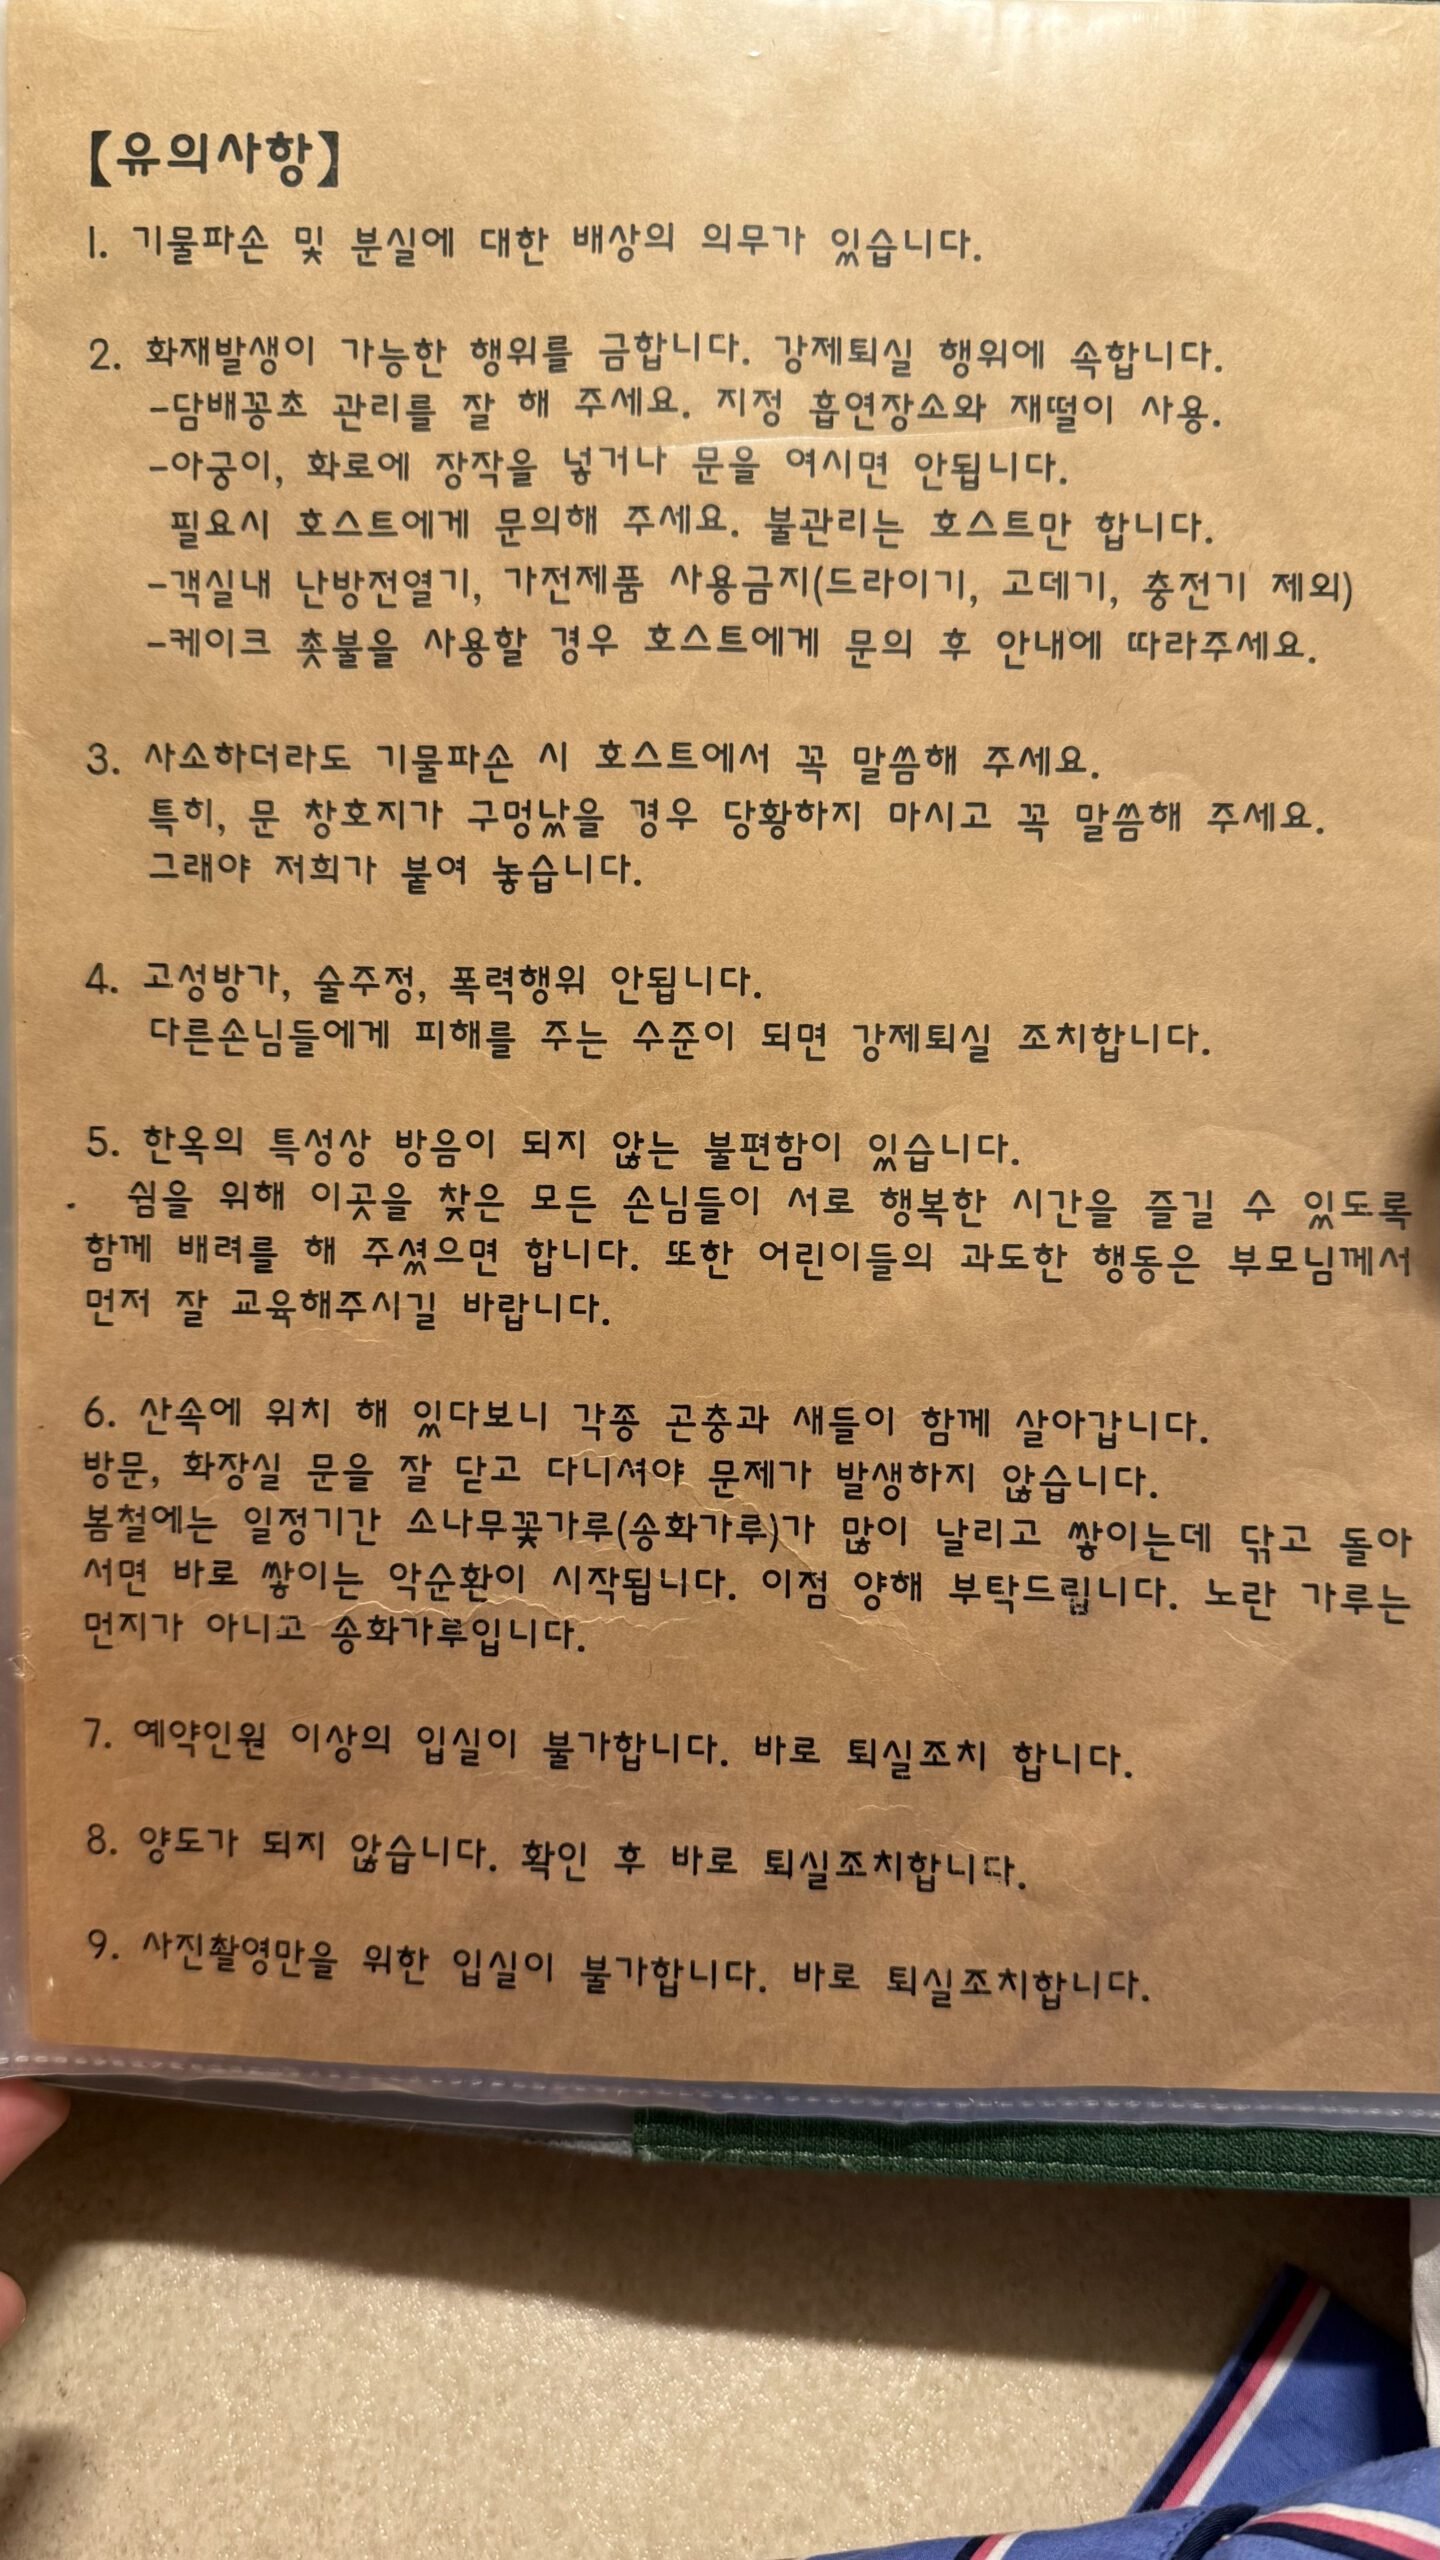 【유의사항】
1. 기물파손 및 분실에 대한 배상의 의무가 있습니다.
2. 화재발생이 가능한 행위를 금합니다. 강제퇴실 행위에 속합니다.
-담배꽁초 관리를 잘 해 주세요. 지정 흡연장소와 재떨이 사용.
-아궁이, 화로에 장작을 넣거나 문을 여시면 안됩니다.
필요시 호스트에게 문의해 주세요. 불관리는 호스트만 합니다.
-객실내 난방전열기, 가전제품 사용금지(드라이기, 고데기, 충전기 제외)
-케이크 촛불을 사용할 경우 호스트에게 문의 후 안내에 따라주세요.
3. 사소하더라도 기물파손 시 호스트에서 꼭 말씀해 주세요.
특히, 문 창호지가 구멍났을 경우 당황하지 마시고 꼭 말씀해 주세요.
그래야 저희가 붙여 놓습니다.
4. 고성방가, 술주정, 폭력행위 안됩니다.
다른손님들에게 피해를 주는 수준이 되면 강제퇴실 조치합니다.
5. 한옥의 특성상 방음이 되지 않는 불편함이 있습니다.
쉼을 위해 이곳을 찾은 모든 손님들이 서로 행복한 시간을 즐길 수 있도록
함께 배려를 해 주셨으면 합니다. 또한 어린이들의 과도한 행동은 부모님께서
먼저 잘 교육해주시길 바랍니다.
6. 산속에 위치 해 있다보니 각종 곤충과 새들이 함께 살아갑니다.
방문, 화장실 문을 잘 닫고 다니셔야 문제가 발생하지 않습니다.
봄철에는 일정기간 소나무꽃가루(송화가루)가 많이 날리고 쌓이는데 닦고 돌아
서면 바로 쌓이는 악순환이 시작됩니다. 이점 양해 부탁드립니다. 노란 가루는
먼지가 아니고 송화가루입니다.
7. 예약인원 이상의 입실이 불가합니다. 바로 퇴실조치 합니다.
8. 양도가 되지 않습니다. 확인 후 바로 퇴실조치합니다.
9. 사진촬영만을 위한 입실이 불가합니다. 바로 퇴실조치합니다.